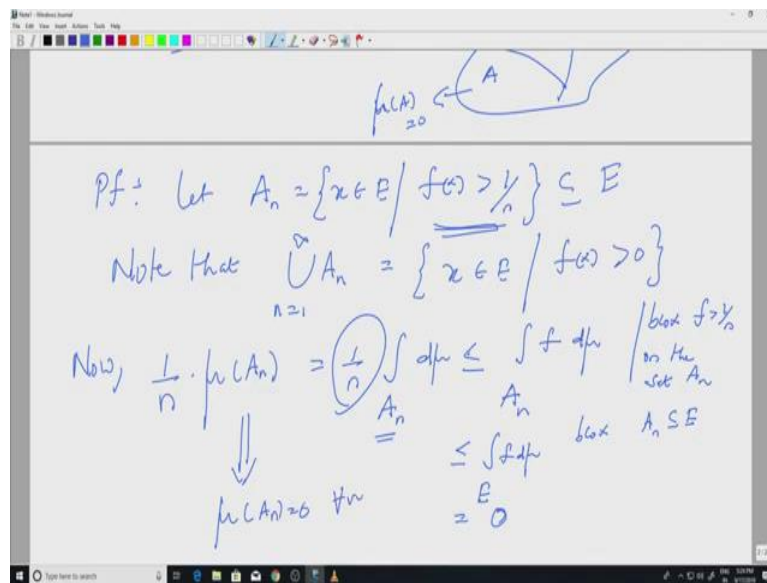 Note1 - Windows Journal
File Edit View Insert Actions Tools Help
A
μ(A) = 0
Pf: Let Aₙ = {x ∈ E / f(x) > 1/n} ⊆ E
Note that ∞∪n=1 Aₙ = {x ∈ E / f(x) > 0}
Now, 1/n · μ(Aₙ) = (1/n) ∫Aₙ dμ ≤ ∫Aₙ f dμ / bcox f > 1/n on the set Aₙ
≤ ∫E f dμ bcox Aₙ ⊆ E
⇓
μ(Aₙ) = 0 ∀n
= 0
Type here to search
ENG